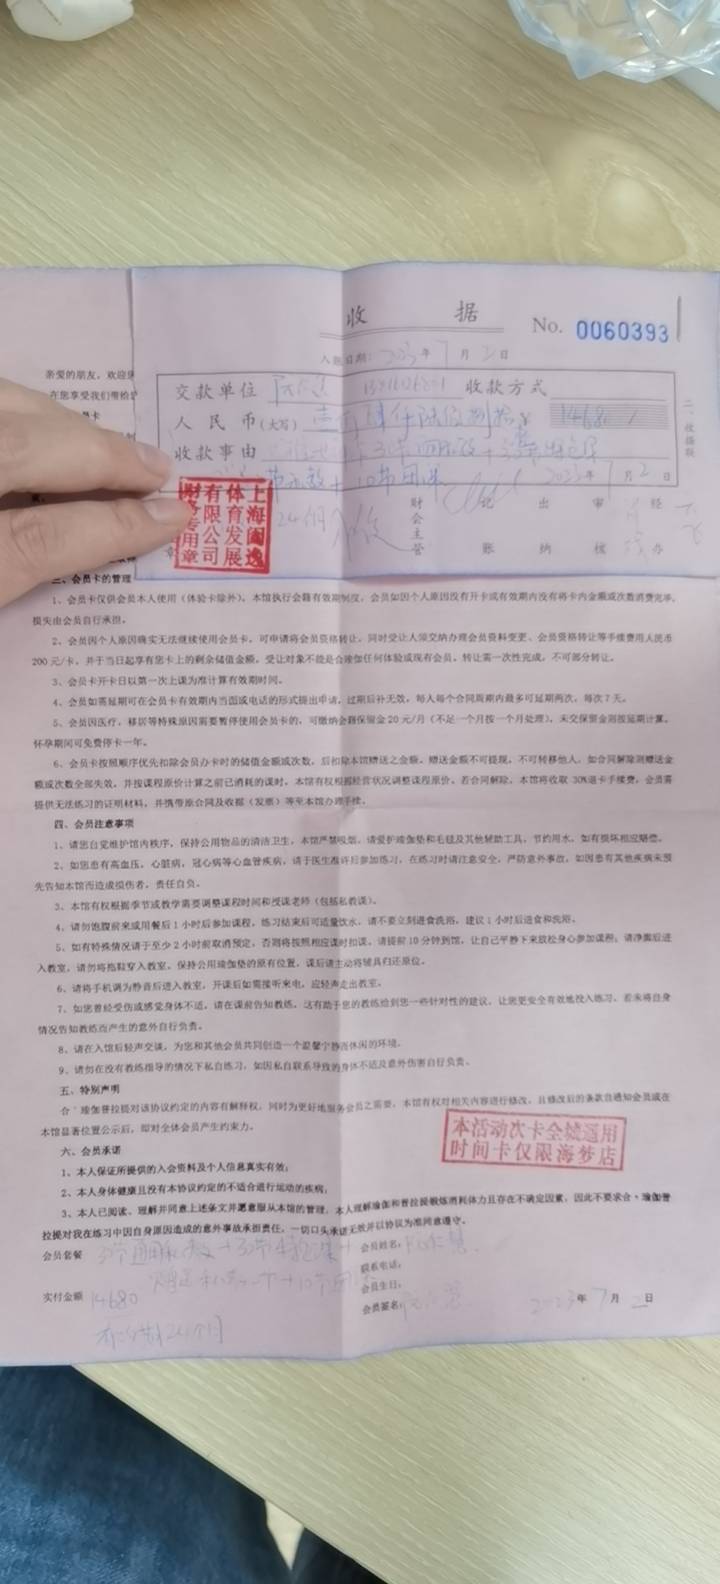 收 据
No. 0060393
入账日期：2023年7月2日
交款单位
收款方式
人民币(大写) 壹万肆仟陆佰捌拾 ¥ 14680
收款事由
二、收据联
2023年7月2日
24个月
财会主管
记账
出纳
审核
经办
上海阖逸
体育发展
有限公司
财务专用章
亲爱的朋友，欢迎
在您享受我们带给
员卡
三、会员卡的管理
1、会员卡仅供会员本人使用（体验卡除外），本馆执行会籍有效期制度，会员如因个人原因没有开卡或有效期内没有将卡内金额或次数消费完毕，
损失由会员自行承担。
2、会员因个人原因确实无法继续使用会员卡，可申请将会员资格转让，同时受让人须交纳办理会员资料变更、会员资格转让等手续费用人民币
200 元/卡，并于当日起享有您卡上的剩余储值金额，受让对象不能是合瑜伽任何体验或现有会员，转让需一次性完成，不可部分转让。
3、会员卡开卡日以第一次上课为准计算有效期间。
4、会员如需延期可在会员卡有效期内当面或电话的形式提出申请，过期后补无效，每人每个合同周期内最多可延期两次，每次 7 天。
5、会员因医疗，移居等特殊原因需要暂停使用会员卡的，可缴纳会籍保留金 20 元/月（不足一个月按一个月处理），未交保留金则按延期计算。
怀孕期间可免费停卡一年。
6、会员卡按照顺序优先扣除会员办卡时的储值金额或次数，后扣除本馆赠送之金额。赠送金额不可提现，不可转移他人，如合同解除则赠送金
额或次数全部失效，并按课程原价计算之前已消耗的课时，本馆有权根据经营状况调整课程原价。若合同解除，本馆将收取 30%退卡手续费，会员需
提供无法练习的证明材料，并携带原合同及收据（发票）等至本馆办理手续。
四、会员注意事项
1、请您自觉维护馆内秩序，保持公用物品的清洁卫生，本馆严禁吸烟，请爱护瑜伽垫和毛毯及其他辅助工具，节约用水，如有损坏相应赔偿。
2、如您患有高血压，心脏病，冠心病等心血管疾病，请于医生准许后参加练习，在练习时请注意安全，严防意外事故，如因患有其他疾病未预
先告知本馆而造成损伤者，责任自负。
3、本馆有权根据季节或教学需要调整课程时间和授课老师（包括私教课）。
4、请勿饱腹前来或用餐后 1 小时后参加课程，练习结束后可适量饮水，请不要立刻进食洗浴，建议 1 小时后进食和洗浴。
5、如有特殊情况请于至少 2 小时前取消预定，否则将按照相应课时扣课，请提前 10 分钟到馆，让自己平静下来放松身心参加课程；请净脚后进
入教室，请勿将拖鞋穿入教室，保持公用瑜伽垫的原有位置，课后请主动将辅具归还原位。
6、请将手机调为静音后进入教室，开课后如需接听来电，应轻声走出教室。
7、如您曾经受伤或感觉身体不适，请在课前告知教练，这有助于您的教练给到您一些针对性的建议，让您更安全有效地投入练习，若未将自身
情况告知教练而产生的意外自行负责。
8、请在入馆后轻声交谈，为您和其他会员共同创造一个温馨宁静而休闲的环境。
9、请勿在没有教练指导的情况下私自练习，如因私自联系导致的身体不适及意外伤害自行负责。
五、特别声明
合·瑜伽普拉提对该协议约定的内容有解释权，同时为更好地服务会员之需要，本馆有权对相关内容进行修改，且修改后的条款自通知会员或在
本馆显著位置公示后，即对全体会员产生约束力。
本活动次卡全城通用
时间卡仅限海梦店
六、会员承诺
1、本人保证所提供的入会资料及个人信息真实有效；
2、本人身体健康且没有本协议约定的不适合进行运动的疾病；
3、本人已阅读、理解并同意上述条文并愿意服从本馆的管理，本人理解瑜伽和普拉提锻炼消耗体力且存在不确定因素，因此不要求合·瑜伽普
拉提对我在练习中因自身原因造成的意外事故承担责任，一切口头承诺无效并以协议为准同意遵守。
会员套餐
会员姓名：
联系电话：
会员生日：
实付金额 14680
会员签名：
2023年7月2日
有效期24个月